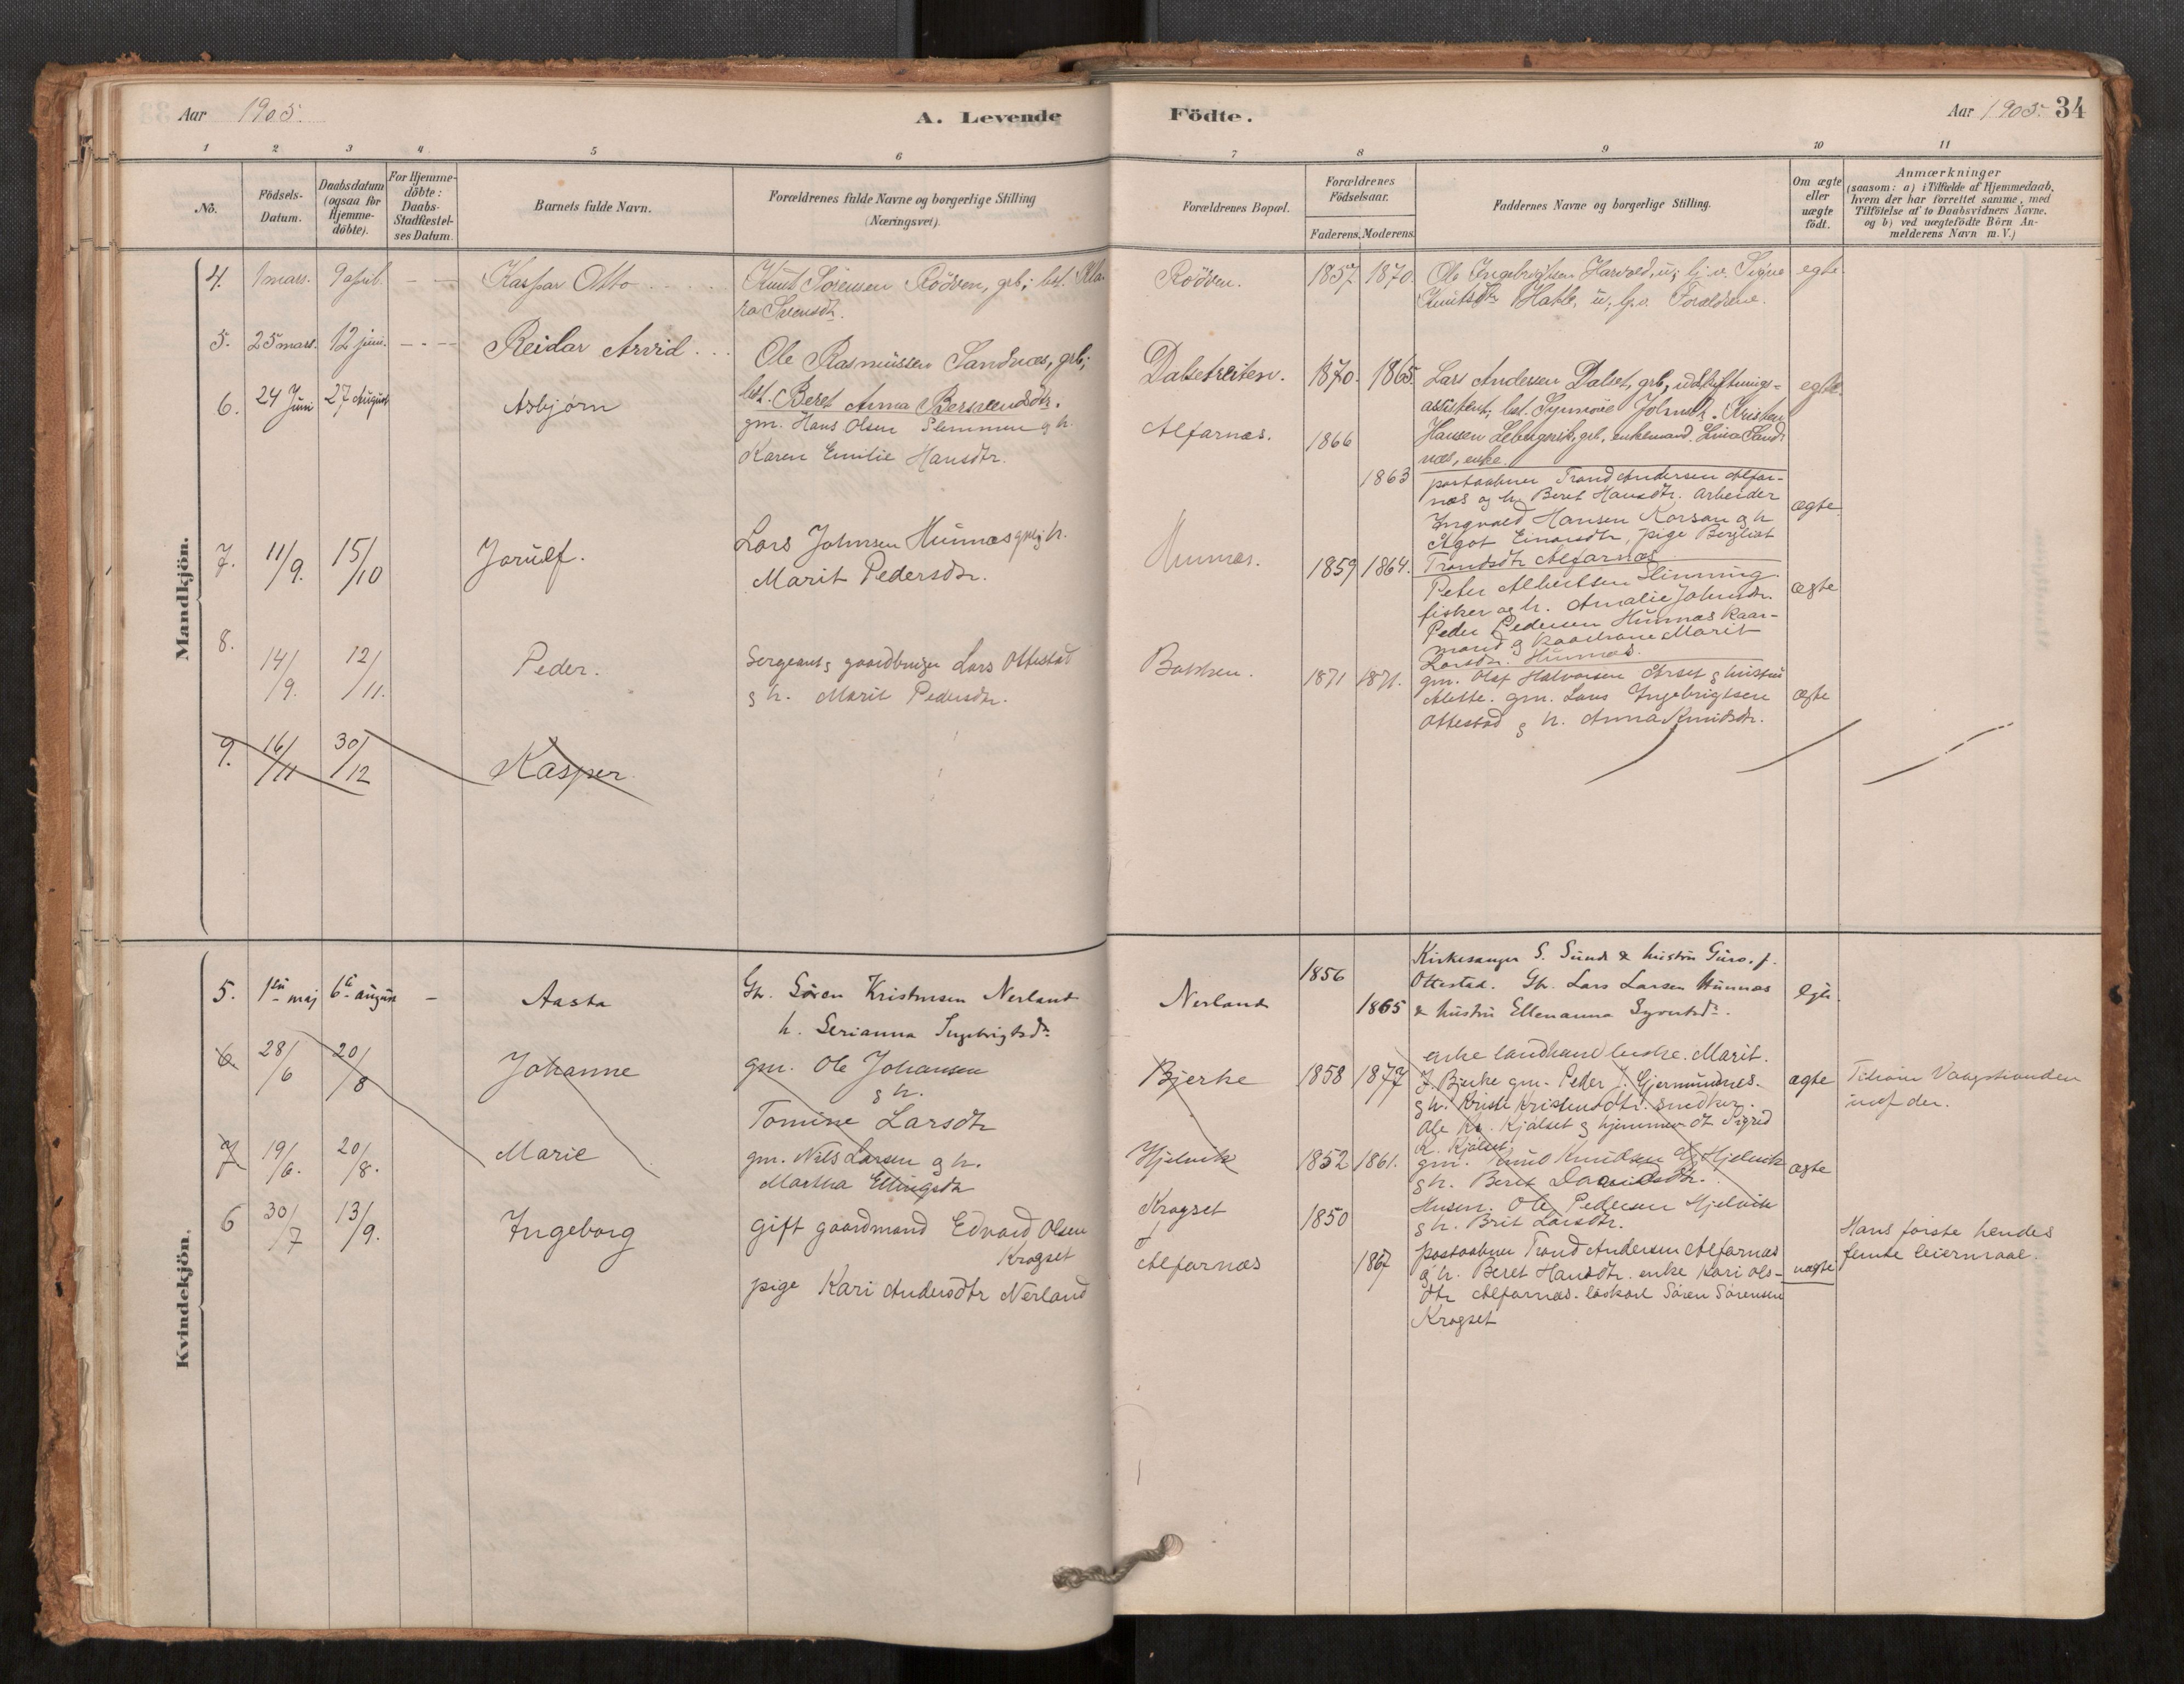 Aar 1905.
A. Levende Födte.
Aar 1905. 34
1 2 3 4 5 6 7 8 9 10 11
No.
Födsels-
Datum.
Daabsdatum
(ogsaa for
Hjemme-
döbte).
For Hjemme-
döbte:
Daabs-
Stadfæstel-
ses Datum.
Barnets fulde Navn.
Forældrenes fulde Navne og borgerlige Stilling
(Næringsvei).
Forældrenes Bopæl.
Forældrenes
Födselsaar.
Faderens. Moderens.
Faddernes Navne og borgerlige Stilling.
Om ægte
eller
uægte
födt.
Anmærkninger
(saasom: a) i Tilfælde af Hjemmedaab,
hvem der har forrettet samme, med
Tilföielse af to Daabsvidners Navne.
og b) ved uægtefödte Börn An-
melderens Navn m. V.)
Mandkjön.
4. 1 mars. 9 april. - - Kaspar Otto
Knut Sörensen Rödven, grb; 
ra Svensdtr.
Rödven. 1857 1870.
Ole Ingebrigtsen Harvold, u; Signe
Knutsdtr Hatle, u, Forældrene.
egte
5. 25 mars. 12 juni. - - Reidar Arvid
Ole Rasmussen Sandnæs, grb;
Beret Anna Berntsdtr.
Dalsetreiten. 1870. 1865.
Lars Andersen Dalset, grb, udskiftnings-
assistent; Synnöve Johnsdtr. Kristen
Hansen grb, enkemand. Lina Sand-
næs, enke.
egte.
6. 24 Juni 27 August Asbjørn
gm. Hans Olsen Slemmen og h.
Karen Emilie Hansdtr.
Alfarnæs. 1866 1863
postaabner Trond Andersen Alfar-
næs og h. Beret Hansdtr. arbeider
Ingvald Hansen Korsan og h
Agot Einarsdtr, pige Bergliot
Trondsdtr Alfarnæs
ægte
7. 11/9. 15/10 Jorulf.
Lars Johnsen Hunnæs gm og h.
Marit Pedersdtr.
Hunnæs. 1859 1864.
Peter Albertsen Slinning
fisker og h. Amalie Johnsdtr.
Peder Pedersen Hunnæs kaar-
mand og kaarkone Marit
Larsdtr. Hunnæs.
ægte
8. 14/9. 12/11. Peder.
Sergeant og gaardbruger Lars Ottestad
og h. Marit Pedersdtr.
Bakken. 1871 1871.
gm. Olaf Halvorsen Årset og hustru
Alette. gm. Lars Ingebrigtsen
Ottestad og h. Anna Knudsdtr.
ægte
9. 16/11 30/12 Kasper
Kvindekjön.
5. 1ste maj 6te august - Aasta
Gbr. Sören Kristensen Nerland
h. Serianna Ingebrigtsdtr
Nerland 1856 1865
Kirkesanger S. Sund & hustru Guro. f.
Ottestad. Gbr. Lars Larsen Hunnæs
& hustru Ellenanna Syvertsdtr.
egte.
6 28/6 20/8 Johanne
gm. Ole Johansen
og h.
Tomine Larsdtr
Bjerke 1858 1877
enke Marit.
J. Bjerke gm. Peder J. Gjermundnes.
og h. Kristi Kristensdtr. snedker.
Ole Kr. Kjølset og hjemmev dt Sigrid
K. Kjølset
ægte Vaagstranden
7 19/6. 20/8. Marie
gm. Nils Larsen og h.
Martha Ellingsdtr
Hjelvik 1852 1861.
gm. Knud Knudsen Hjelvik
og h. Beret Davidsdtr.
Husm. Ole Pedersen Hjelvik
og h. Brit Larsdtr.
ægte
6 30/7 13/9. Ingeborg
gift gaardmand Edvard Olsen
Krogset
pige Kari Andersdtr Nerland
Krogset
&
Alfarnæs
1850 1867
postaabner Trond Andersen Alfarnæs
og h. Beret Hansdtr. enke Kari Ols-
dtr Alfarnæs. løskarl Søren Sørensen
Krogset
uægte
Hans første hendes
femte leiermaal.